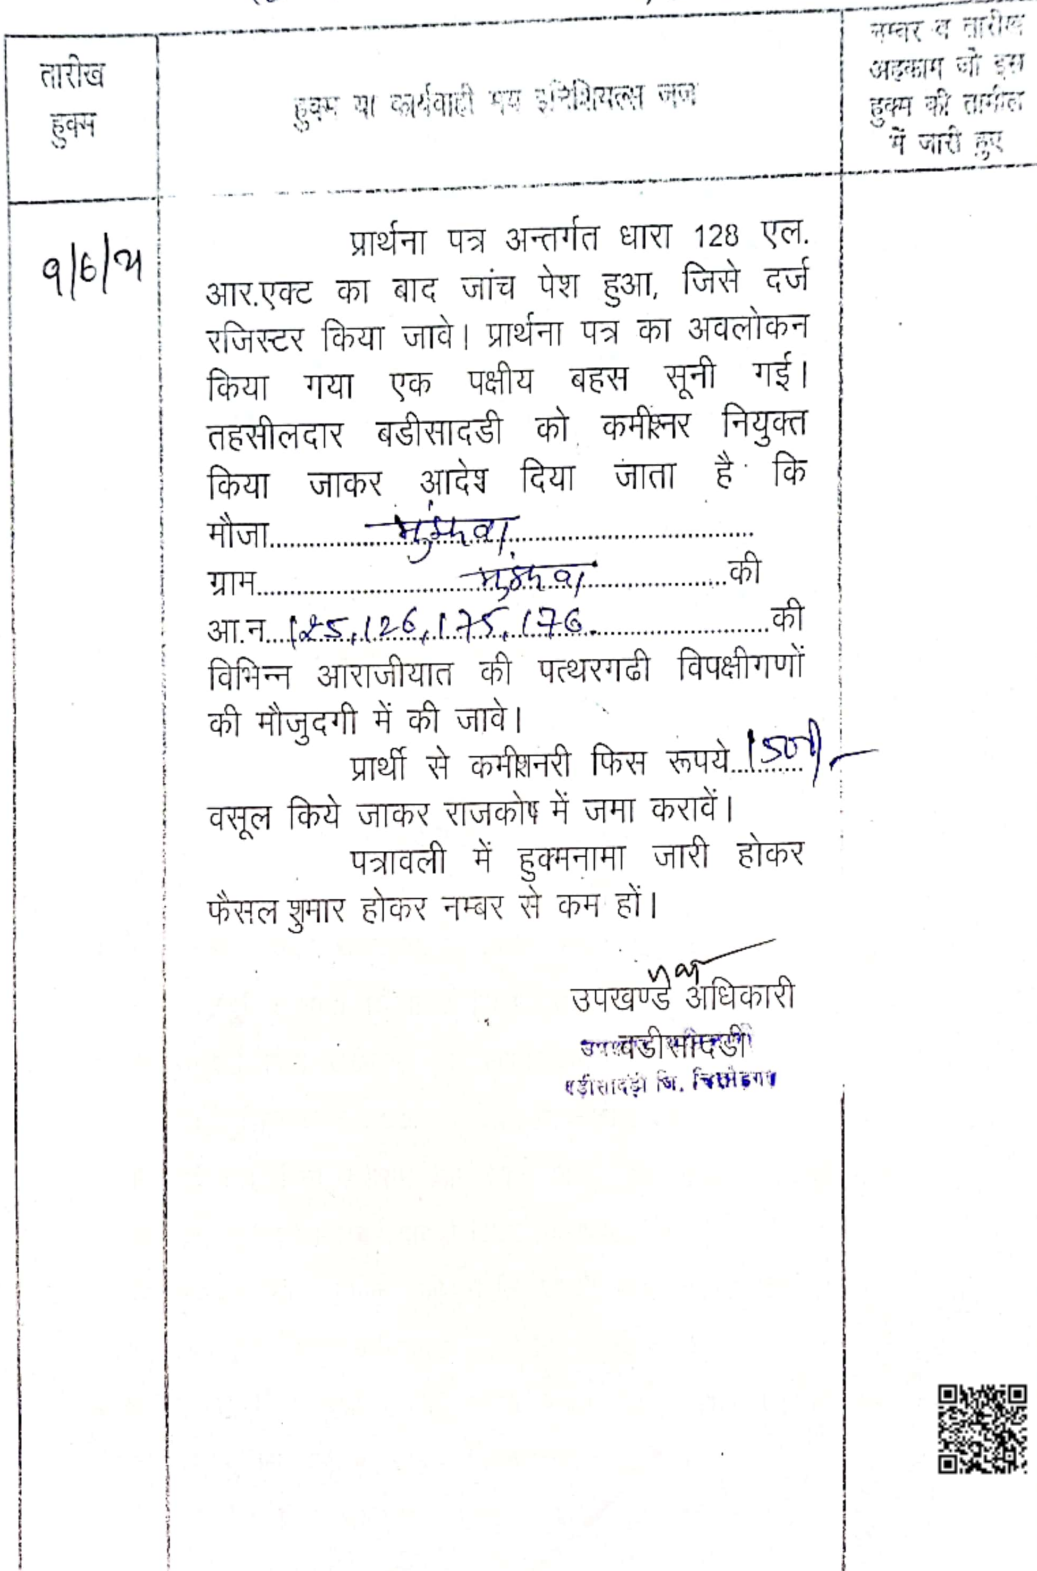 तारीख
हुक्म
हुक्म या कार्यवाही मय इनिशियल्स जज
नम्बर व तारीख
अहकाम जो इस
हुक्म की तामील
में जारी हुए
9/6/21
प्रार्थना पत्र अन्तर्गत धारा 128 एल.
आर.एक्ट का बाद जांच पेश हुआ, जिसे दर्ज
रजिस्टर किया जावे। प्रार्थना पत्र का अवलोकन
किया गया एक पक्षीय बहस सूनी गई।
तहसीलदार बडीसादडी को कमीश्नर नियुक्त
किया जाकर आदेश दिया जाता है कि
मौजा
ग्राम की
आ.न. 125, 126, 175, 176. की
विभिन्न आराजीयात की पत्थरगढी विपक्षीगणों
की मौजुदगी में की जावे।
प्रार्थी से कमीशनरी फिस रूपये
वसूल किये जाकर राजकोष में जमा करावें।
पत्रावली में हुक्मनामा जारी होकर
फैसल शुमार होकर नम्बर से कम हों।
उपखण्ड अधिकारी
बडीसादडी
बड़ीसादड़ी जि. चित्तौड़गढ़